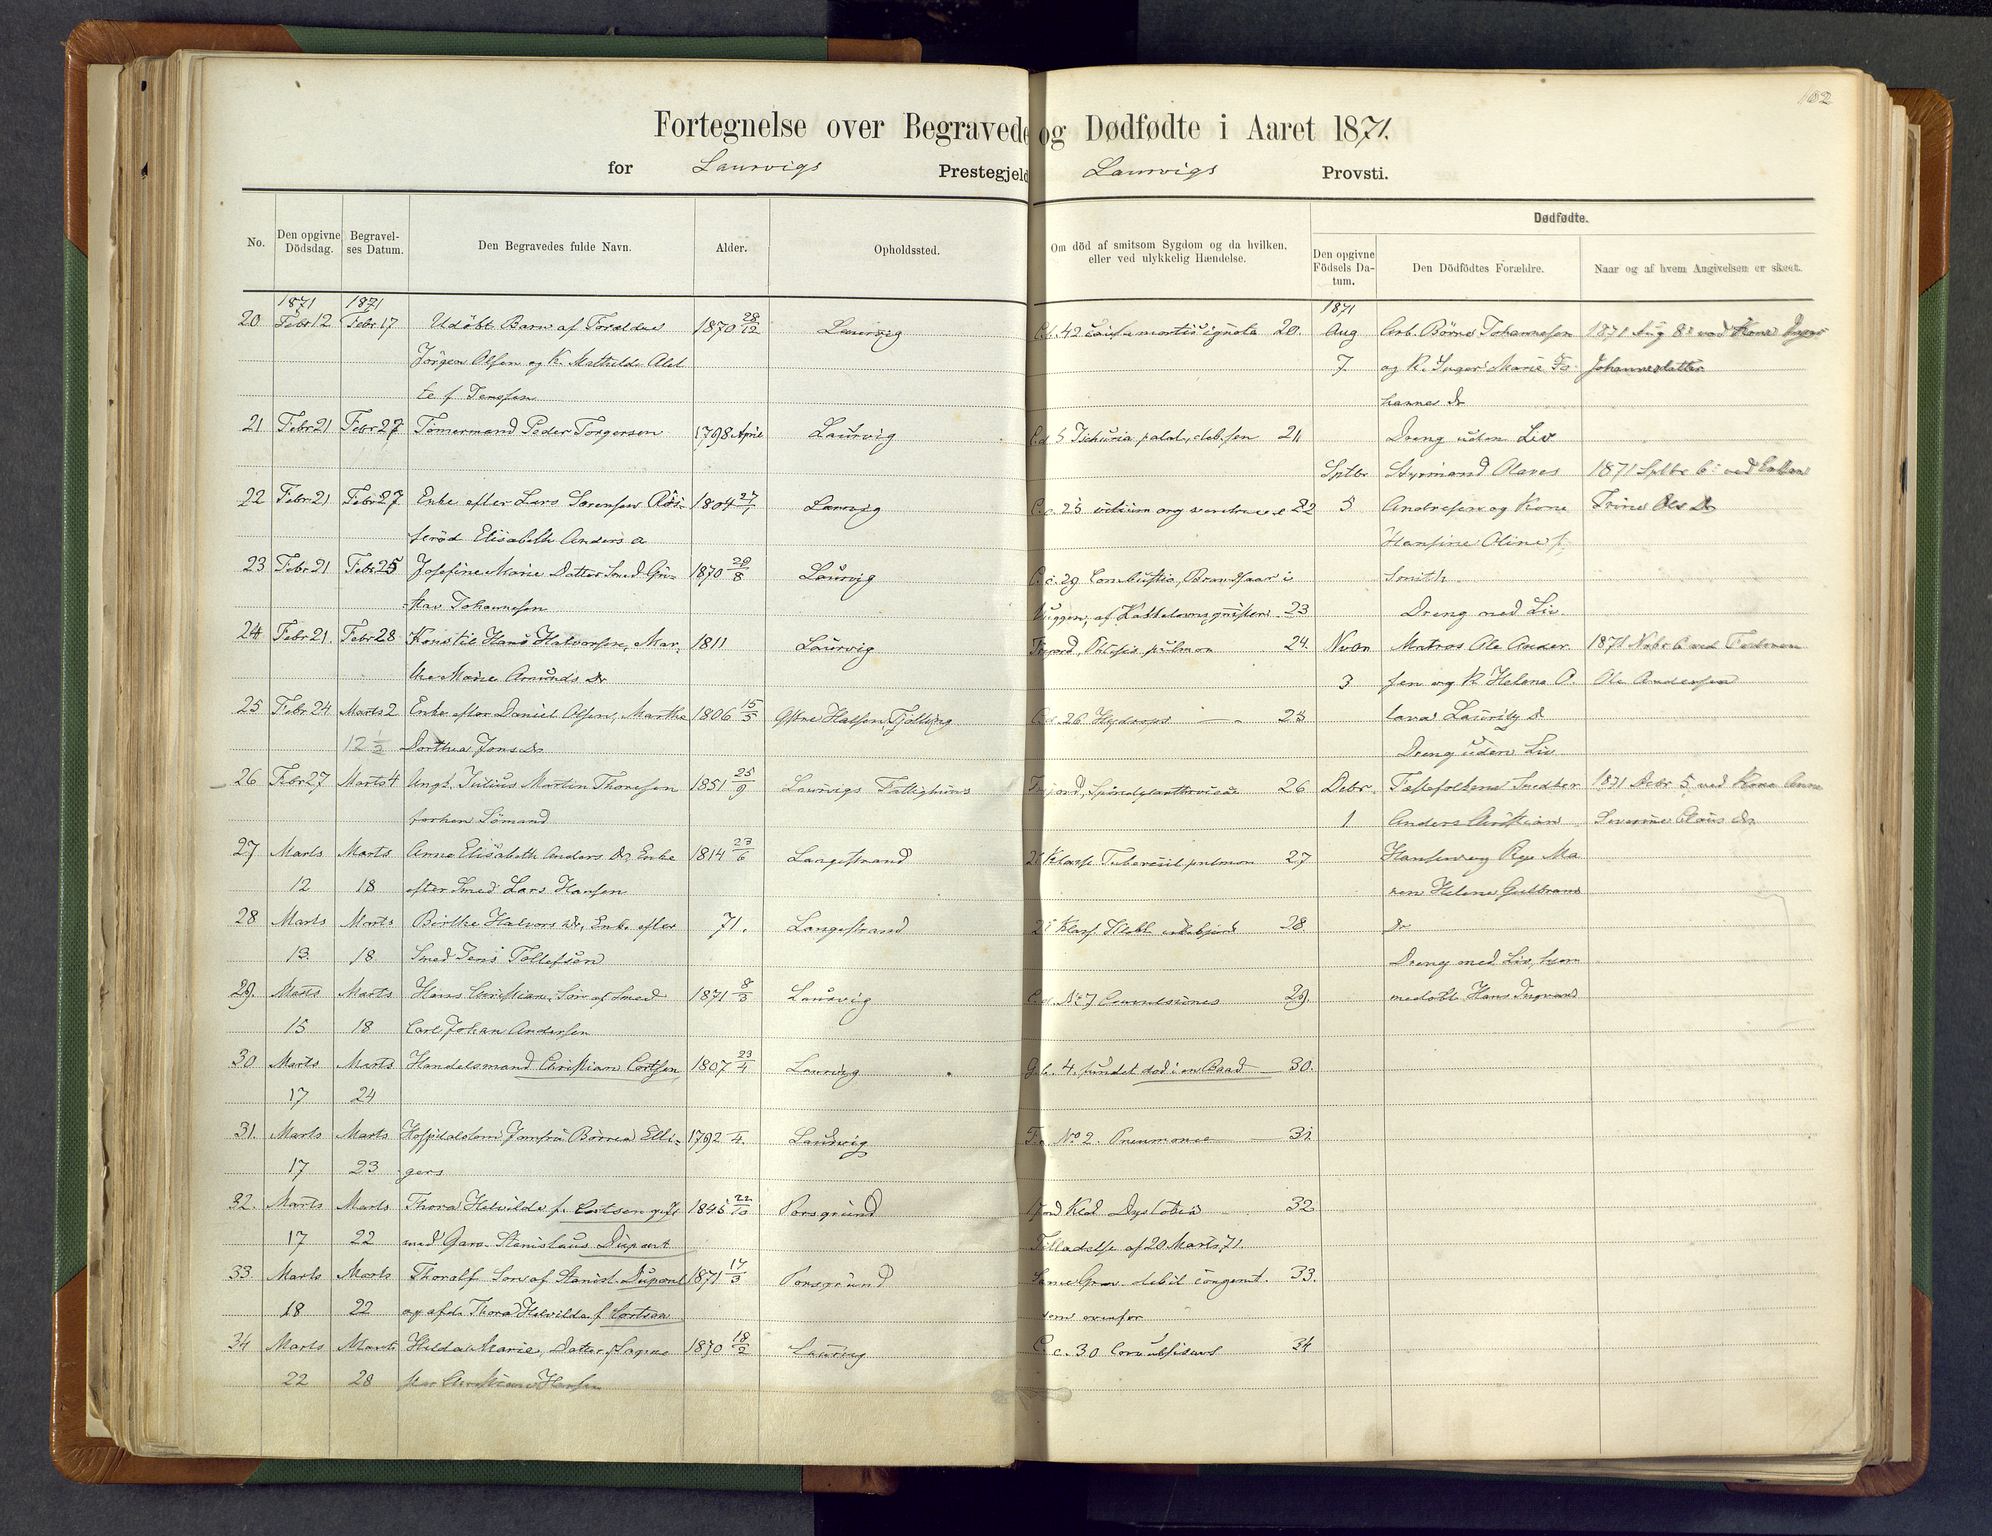 102
Fortegnelse over Begravede og Dødfødte i Aaret 1871.
for Laurvigs Prestegjeld Laurvigs Provsti.
No. Den opgivne Dödsdag. Begravelses Datum. Den Begravedes fulde Navn. Alder. Opholdssted. Om död af smitsom Sygdom og da hvilken, eller ved ulykkelig Hændelse. Dødfødte.
Den opgivne Födsels Datum. Den Dödfödtes Forældre. Naar og af hvem Angivelsen er skeet.
1871 1871 1871
20 Febr 12 Febr 17 Udöbt Barn af Forældre 1870 28/12 Laurvig C.b. 42 causa mortis ignota 20. Aug Arb. Börre Johannesen 1871 Aug 8: ved Kone Inger
Jörgen Olsen og K. Mathilde Alet 7 og K. Inger Marie Jo Johannesdatter
te f. Jensen hannes Dr
21 Febr 21 Febr 27 Tömermand Peder Torgersen 1798 April Laurvig C.d 5 Ischuria 21 Dreng uden Liv
Sptbr Styrmand 1871 Sptbr 6: ved
22 Febr 21 Febr 27 Enke efter Lars Sörensen Rös- 1804 27/1 Laurvig C.c. 25 vitium org 22 5 Andresen og Kone Trine Ols Dr
Elisabeth Anders Hansine Oline f.
23 Febr 21 Febr 25 Josefine Marie Datter Smed Gu- 1870 29/8 Laurvig C.c. 29 Combustio, Brandsaar i Smith.
stav Johannesen Vuggen, af Kakkelovnsgnisten 23 Dreng med Liv
24 Febr 21. Febr 28 Kone til Hans Halvorsen, Mar- 1811 Laurvig Phtisis pulmon 24. Matros Ole Ander 1871 Nvbr 6 ved Faderen
the Marie Amunds Dr 3 sen og K Helene O. Ole Andersen
25 Febr 24 Marts 2 Enke efter Daniel Olsen, Marthe 1806 15/5 Östre Halsen, Tjölling C.d. 26 Hydrops 25 lava Lauritz Dr
Dorthea Jons Dr Dreng uden Liv
26 Febr 27 Marts 4 Ungk. Julius Martin Thoresen 1851 25/9 Laurvigs Fattighuus 26 Debr. Fæstefolkene Snedker 1871 Debr 5, ved Kone Anne
Sömand 1 Anders Christian Severine Claus Dr
27 Marts Marts Anne Elisabeth Anders Dr, Enke 1814 23/6 Langestrand 2d Klasse Tubercul pulmon 27 Hansen og Pige Ma
12 18 efter Smed Lars Hansen ren Helene Gulbrans
28 Marts Marts Birthe Halvors Dr, Enke efter 71. Langestrand 28 Dr
13. 18 Smed Jens Tollefsen Dreng med Liv, hjem
29. Marts Marts Hans Christian, Sön af Smed 1871 8/3 Laurvig C.d. No 7 29. medöbt Hans Ingvard
15 18 Carl Johan Andersen
30 Marts Marts Handelsmand Christian Cortsen, 1807 23/4 Laurvig G.b. 4. fundet död i en Baad 30.
17 24
31. Marts Marts Hospitalslem Jomfru Börrea Elli- 1792 /4. Laurvig No 2. Pneumonie 31
17 23 gers
32. Marts Marts Thora Helvilde f. Cortsen gift 1845 22/10 Porsgrund Dystocia 32
17 22 med Garv. Stanislaus Dupont Tilladelse af 20 Marts 71.
33. Marts Marts Thoralf Sön af Stanisl. Dupont 1871 17/3 Porsgrund Samme Grav debil congenit. 33.
18 22 og afd. Thora Helvilda f. Cortsen som ovenfor
34 Marts Marts Hilda Marie, Datter f. 1870 18/2 Laurvig C.c. 30 Convulsiones 34
22 28 Christian Hansen